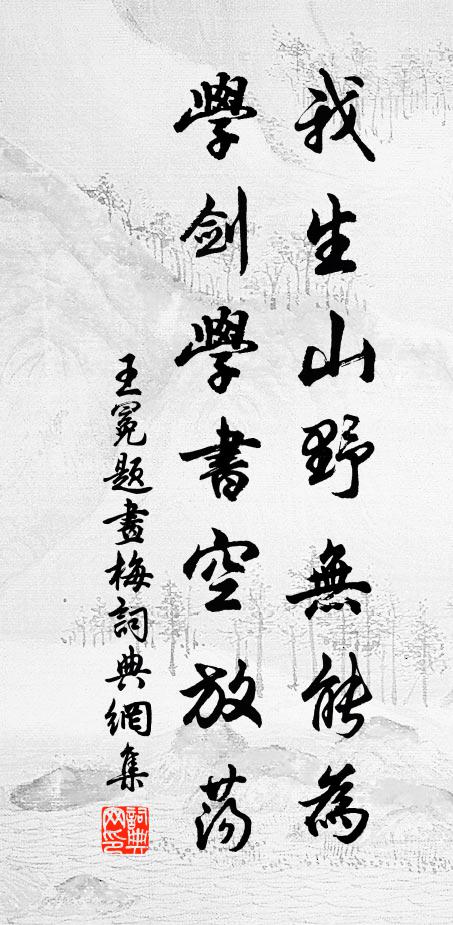 我生山野無能為
學劍學書空放蕩
王冕題畫梅詞典網集
詞典網印